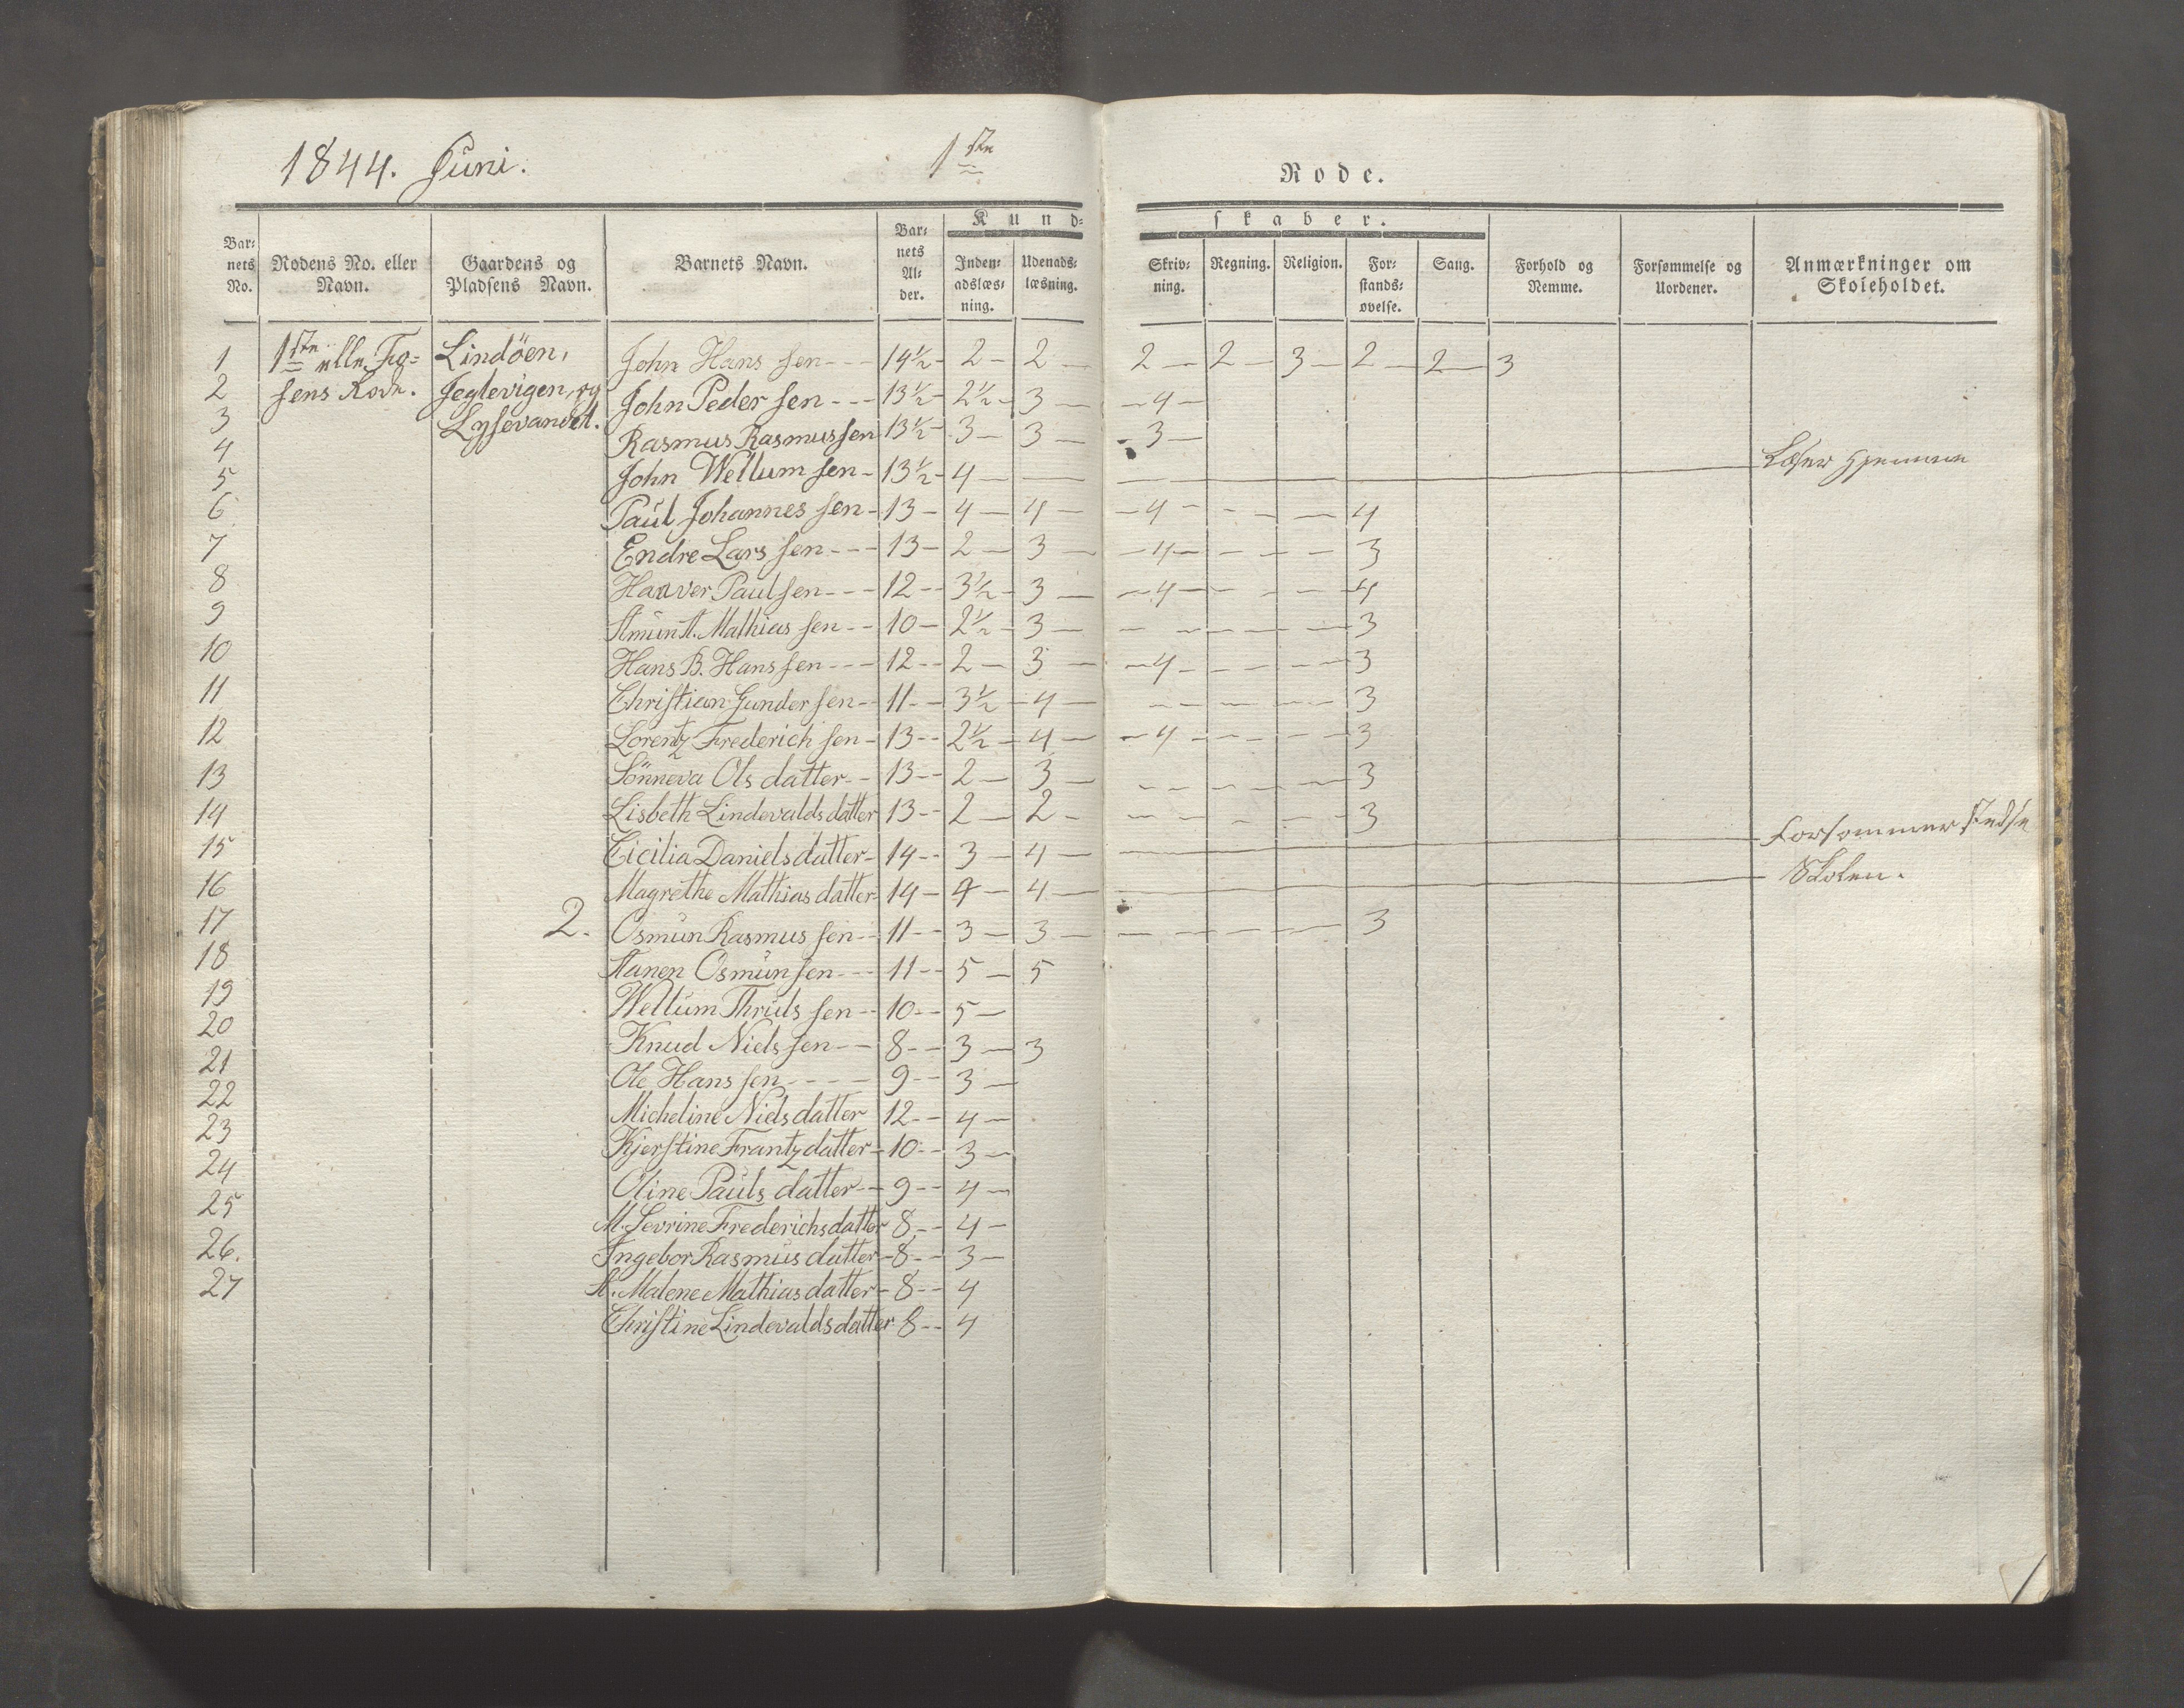 1844. Juni. 1ste Rode.
Kundskaber.
Barnets No. | Rodens No. eller Navn. | Gaardens og Pladsens Navn. | Barnets Navn. | Barnets Alder. | Indenadslæsning. | Udenadslæsning. | Skrivning. | Regning. | Religion. | Forstandsøvelse. | Sang. | Forhold og Nemme. | Forsømmelse og Uordener. | Anmærkninger om Skoleholdet.
1 1ste elle Lindöen, John Hans sen --- 14½ - 2 - 2 - 2 - 2 - 3 - 2 - 2 - 3
2 sens Rode. Jeglevigen, og John Peder sen --- 13½ - 2½ - 3 - 4 -
3 Lysevandet. Rasmus Rasmussen 13½ - 3 - 3 - 3 -
4 John Wellum sen - 13½ - 4 - Læser hjemme
5 Paul Johannes sen - 13 - 4 - 4 - 4 - - - - 4
6 Endre Lars sen --- 13 - 2 - 3 - 4 - - - - 3
7 Haaver Paulsen --- 12 -- 3½ - 3 - 4 - - - - 4
8 Amun A. Mathias sen -- 10 - 2½ - 3 - - - - - 3
9 Hans B. Hanssen --- 12 -- 2 - 3 - 4 - - - - 3
10 Christian Gunder sen -- 11 -- 3½ - 4 - - - - - 3
11 Lorentz Frederich sen - 13 -- 2½ - 4 - 4 - - - - 3
12 Sönneva Ols datter -- 13 -- 2 - 3 - - - - - 3
13 Lisbeth Lindevalds datter 13 -- 2 - 2 - - - - - 3
14 Cicilia Daniels datter - 14 -- 3 - 4 - Forsømmer stedse
15 Magrethe Mathias datter - 14 - 4 - 4 - Skolen.
16 2. Osmun Rasmus sen -- 11 -- 3 - 3 - - - - - 3
17 Aanen Osmunsen --- 11 -- 5 - 5
18 Wellum Thruls sen -- 10 -- 5 -
19 Knud Niels sen -- 8 -- 3 - 3
20 Ole Hans sen ---- 9 -- 3 -
21 Micheline Niels datter 12 - 4 -
22 Kjerstine Frantz datter - 10 -- 3 -
23 Oline Pauls datter -- 9 -- 4 -
24 M. Sevrine Frederichsdatter 8 -- 4 -
25 Ingebor Rasmus datter - 8 -- 3 -
26. A. Malene Mathias datter - 8 -- 4
27 Christine Lindevaldsdatter 8 -- 4